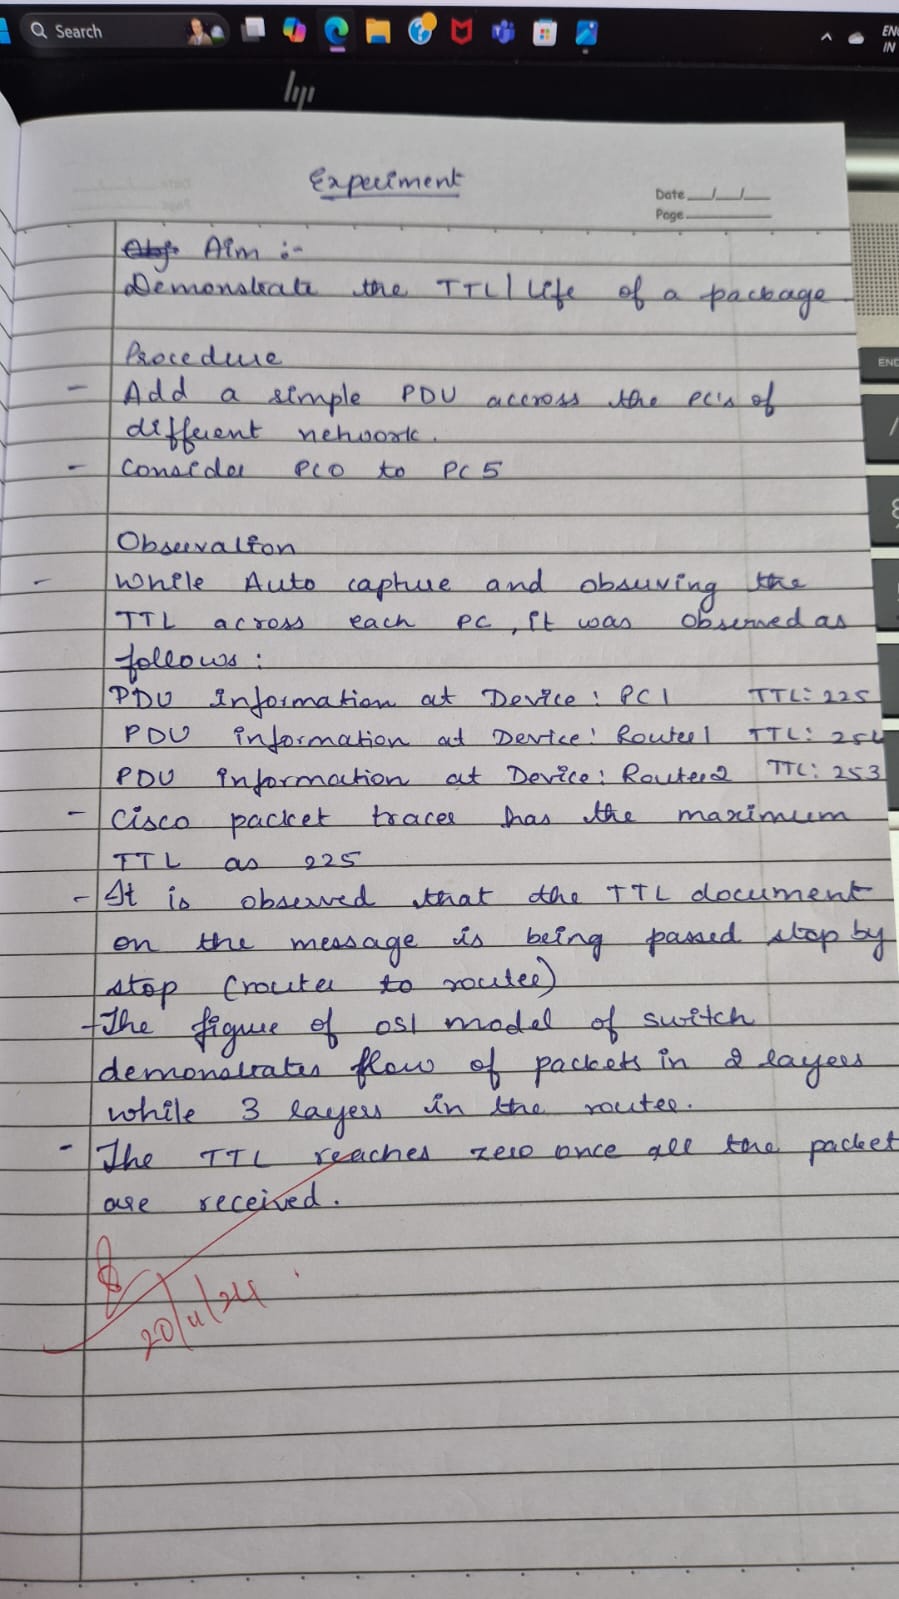 Search
ENG
IN
hp
Experiment
Date __/__/__
Page
Obj. Aim :-
Demonstrate the TTL/Life of a package
Procedure
- Add a simple PDU accross the PC's of
different network.
- Consider PC0 to PC5
Observation
- While Auto capture and observing the
TTL across each PC, it was observed as
follows:
PDU Information at Device: PC1 TTL: 225
PDU information at Device: Router1 TTL: 254
PDU information at Device: Router2 TTL: 253
- Cisco packet tracer has the maximum
TTL as 225
- It is observed that the TTL document
on the message is being passed stop by
stop (router to router)
- The figure of OSI model of switch
demonstrates flow of packets in 2 layers
while 3 layers in the router.
- The TTL reaches zero once all the packet
are received.
20/11/24
END